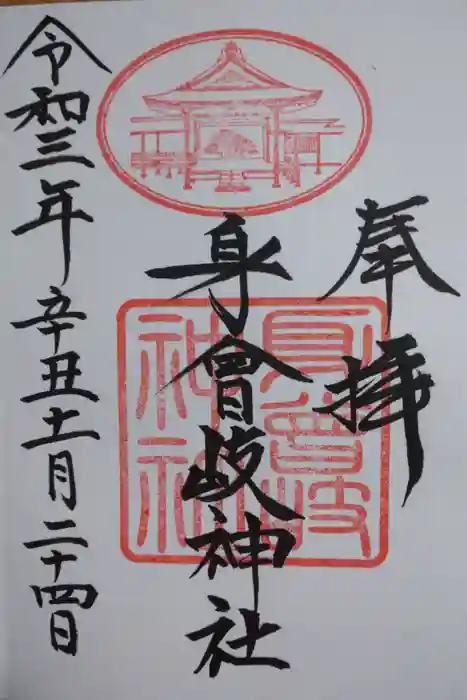 奉拝
身曾岐神社
身曾岐神社
令和三年辛丑十一月二十四日